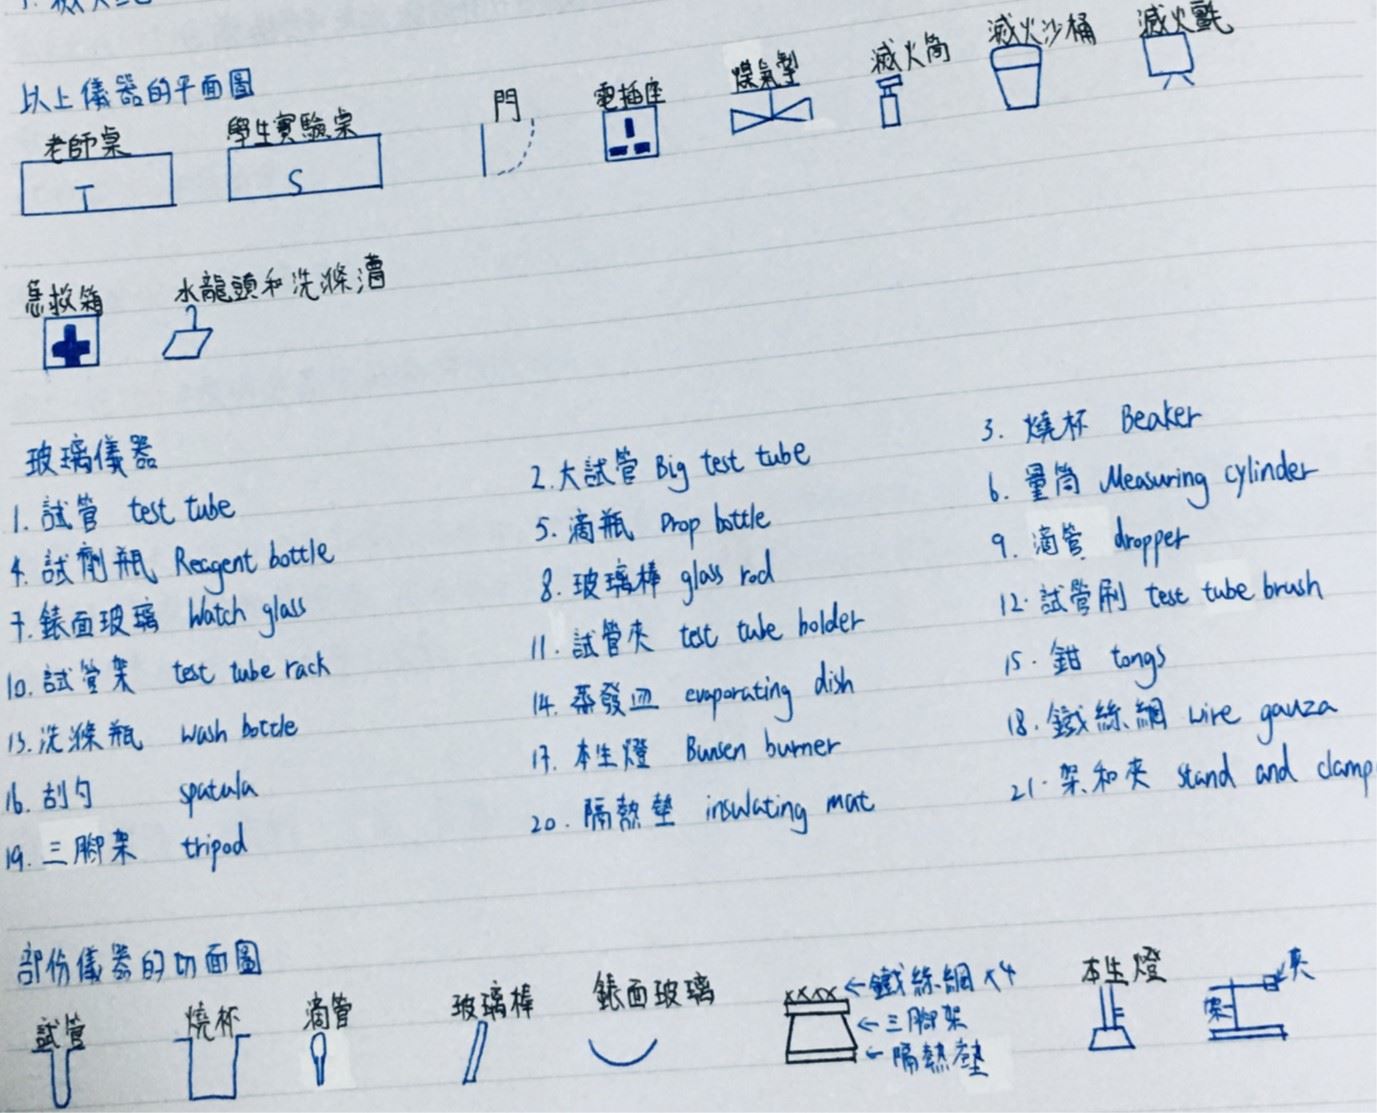 以上儀器的平面圖
老師桌 學生實驗桌 門 電插座 煤氣掣 滅火筒 滅火沙桶 滅火氈
T S
急救箱 水龍頭和洗滌漕
玻璃儀器
1. 試管 test tube 2. 大試管 Big test tube 3. 燒杯 Beaker
4. 試劑瓶 Reagent bottle 5. 滴瓶 Drop bottle 6. 量筒 Measuring cylinder
7. 錶面玻璃 Watch glass 8. 玻璃棒 glass rod 9. 滴管 dropper
10. 試管架 test tube rack 11. 試管夾 test tube holder 12. 試管刷 test tube brush
13. 洗滌瓶 wash bottle 14. 蒸發皿 evaporating dish 15. 鉗 tongs
16. 刮勺 spatula 17. 本生燈 Bunsen burner 18. 鐵絲網 wire gauza
19. 三腳架 tripod 20. 隔熱墊 insulating mat 21. 架和夾 stand and clamp
部份儀器的切面圖
試管 燒杯 滴管 玻璃棒 錶面玻璃 ←鐵絲網 x4 本生燈 夾
xxxx ←三腳架 架
←隔熱墊